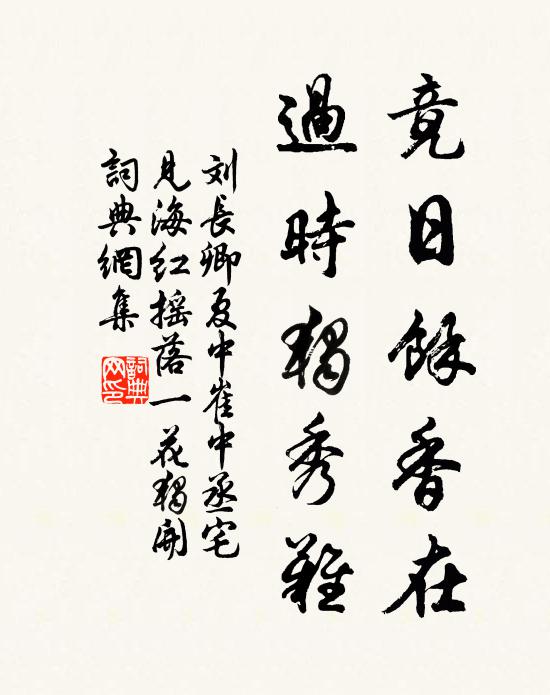 竟日餘香在
過時獨秀難
刘長卿夏中崔中丞宅
見海红摇落一花獨開
詞典網集
詞典网印